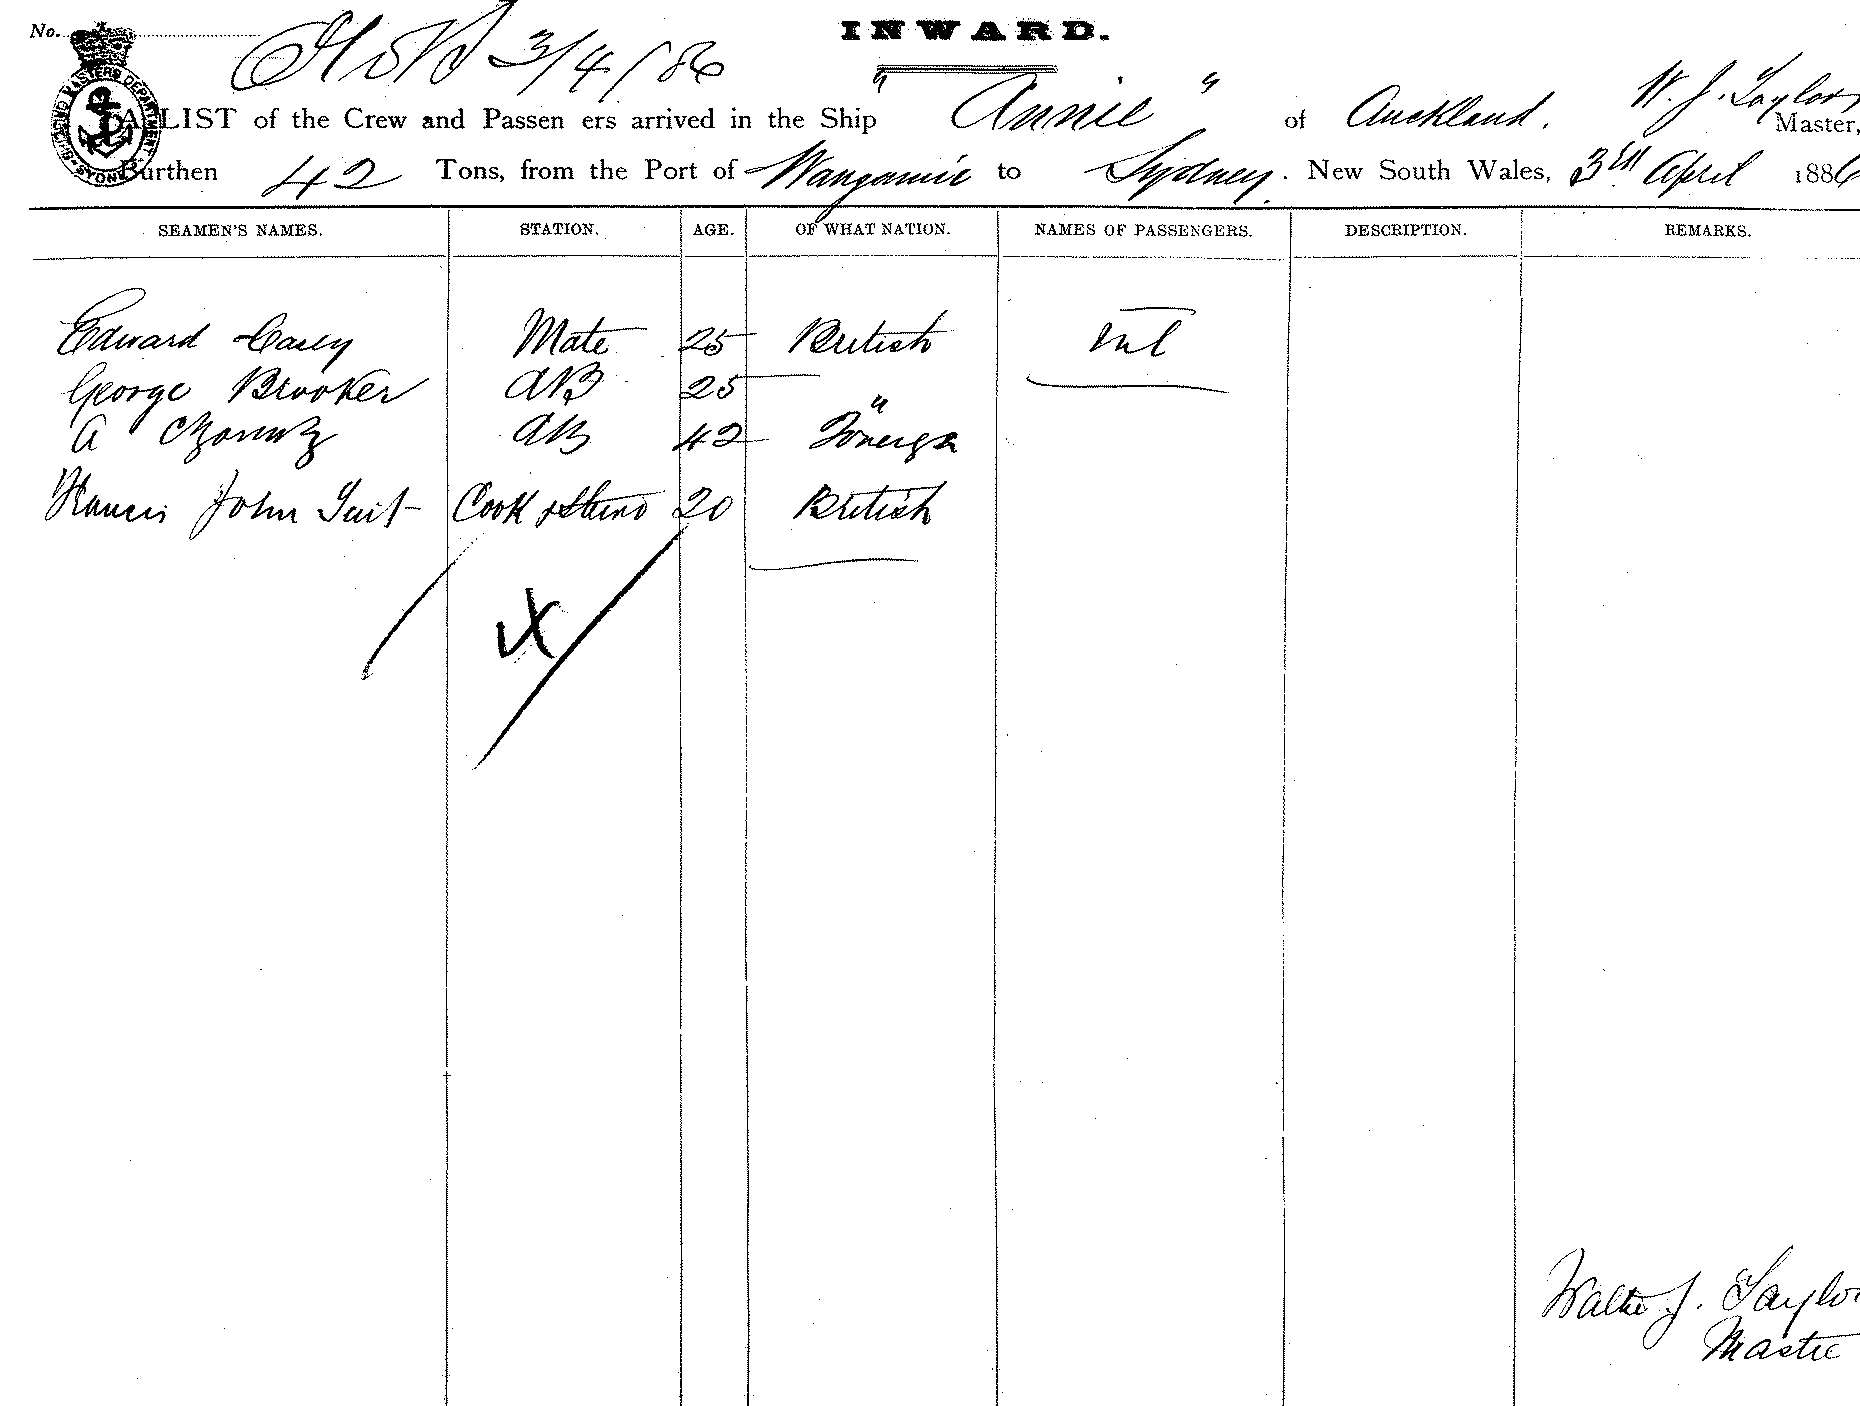 No.
3/4/86
INWARD.
SHIPPING MASTERS DEPARTMENT SYDNEY
A LIST of the Crew and Passen ers arrived in the Ship "Annie" of Auckland. W. J. Taylor Master,
Burthen 42 Tons, from the Port of to Sydney. New South Wales, 3rd April 1886
SEAMEN'S NAMES. STATION. AGE. OF WHAT NATION. NAMES OF PASSENGERS. DESCRIPTION. REMARKS.
Edward Casey Mate 25 British Nil
George Brooker AB 25 "
A AB 42
Francis John Cook & 20 British
Walter J. Taylor
Master